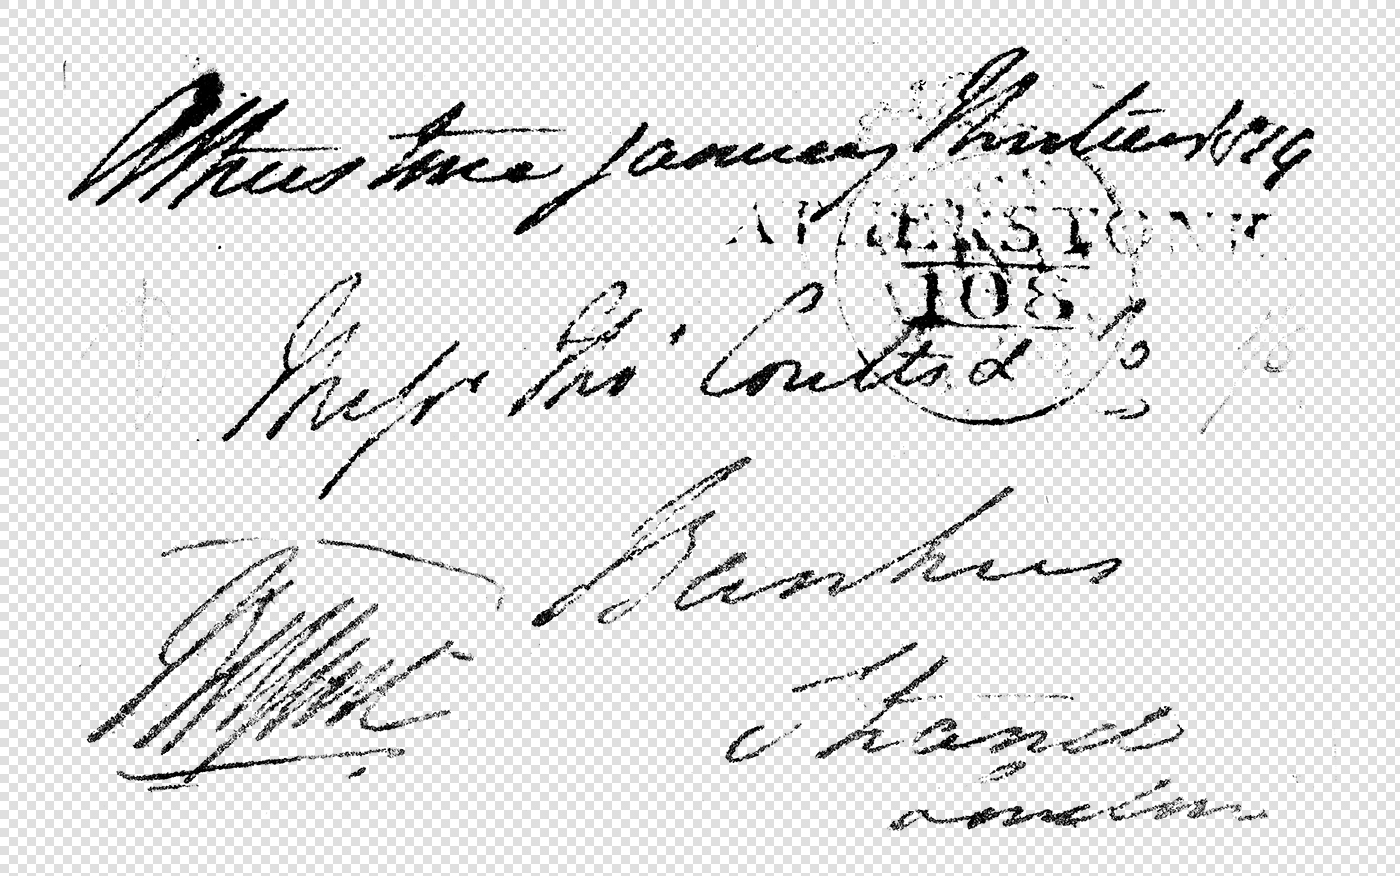 Atherstone January Thirteen
ATHERSTONE
108
Messrs Thos Coutts & Co
Bankers
Strand
London